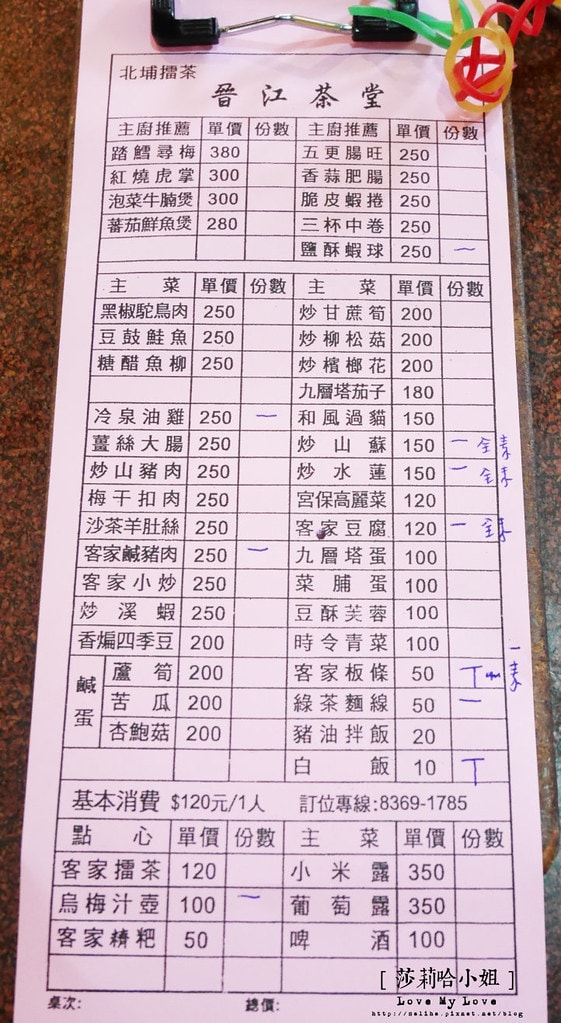 北埔擂茶
晉江茶堂
主廚推薦 單價 份數 主廚推薦 單價 份數
踏鱈尋梅 380 五更腸旺 250
紅燒虎掌 300 香蒜肥腸 250
泡菜牛腩煲 300 脆皮蝦捲 250
蕃茄鮮魚煲 280 三杯中卷 250
鹽酥蝦球 250 一
主菜 單價 份數 主菜 單價 份數
黑椒駝鳥肉 250 炒甘蔗筍 200
豆鼓鮭魚 250 炒柳松菇 200
糖醋魚柳 250 炒檳榔花 200
九層塔茄子 180
冷泉油雞 250 一 和風過貓 150
薑絲大腸 250 炒山蘇 150 一 全素
炒山豬肉 250 炒水蓮 150 一 全素
梅干扣肉 250 宮保高麗菜 120
沙茶羊肚絲 250 客家豆腐 120 一 全素
客家鹹豬肉 250 一 九層塔蛋 100
客家小炒 250 菜脯蛋 100
炒溪蝦 250 豆酥芙蓉 100
香煸四季豆 200 時令青菜 100
鹹蛋 蘆筍 200 客家板條 50 丅 一素
苦瓜 200 綠茶麵線 50 一
杏鮑菇 200 豬油拌飯 20
白飯 10 丅
基本消費 $120元/1人 訂位專線:8369-1785
點心 單價 份數 主菜 單價 份數
客家擂茶 120 小米露 350
烏梅汁壺 100 一 葡萄露 350
客家糐粑 50 啤酒 100
桌次: 總價:
[ 莎莉哈小姐 ]
Love My Love
http://selina.pixnet.net/blog